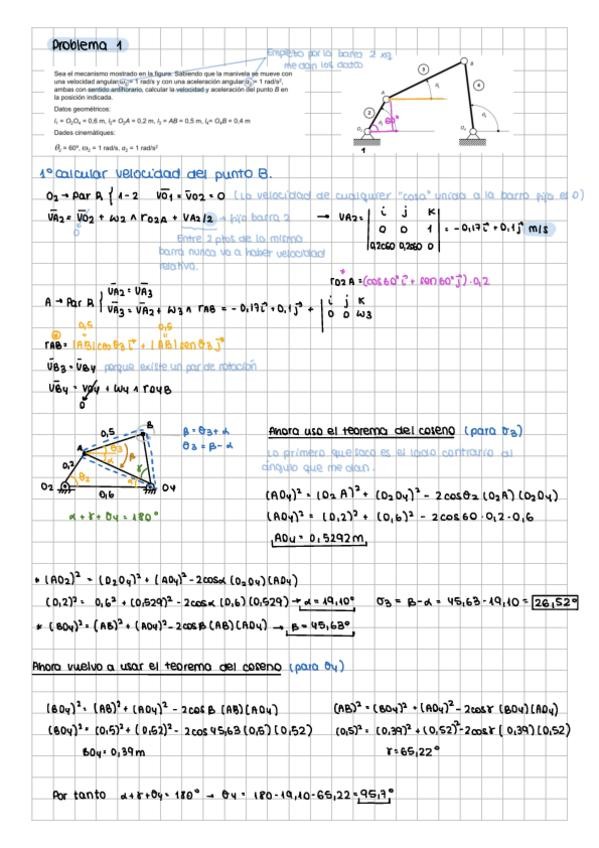 Problema 1
Empiezo por la barra 2 xq
me dan los datos
Sea el mecanismo mostrado en la figura. Sabiendo que la manivela se mueve con
una velocidad angular ω₂= 1 rad/s y con una aceleración angular α₂= 1 rad/s²,
ambas con sentido antihorario, calcular la velocidad y aceleración del punto B en
la posición indicada.
Datos geométricos:
l₁ = O₂O₄ = 0,6 m, l₂= O₂A = 0,2 m, l₃ = AB = 0,5 m, l₄= O₄B = 0,4 m
Dades cinemàtiques:
θ₂ = 60º, ω₂ = 1 rad/s, α₂ = 1 rad/s²
A
B
2
3
4
60º
O₂
O₄
1
1º Calcular velocidad del punto B.
O2 → Par R { 1-2 VO1 = VO2 = 0 (La velocidad de cualquier "cosa" unida a la barra fija es 0)
VA2 = VO2 + ω2 ∧ rO2A + VA2/2 → fijo barra 2 → VA2 = | i j k
0 0 0 1
0,2c60 0,2s60 0 | = -0,17i + 0,1j m/s
Entre 2 ptos de la misma
barra nunca va a haber velocidad
relativa.
rO2A = (cos60º i + sen60º j) · 0,2
A → Par R { VA2 = VA3
VA3 = VA2 + ω3 ∧ rAB = -0,17i + 0,1j + | i j k
0 0 ω3
0,5 0,5
rAB = |AB| cos θ3 i + |AB| sen θ3 j
VB3 = VB4 porque existe un par de rotación
VB4 = VO4 + ω4 ∧ rO4B
0
0,5
B
A
θ3
0,2
α
β
γ
θ2
O2
0,6
O4
β = θ3 + α
θ3 = β - α
α + γ + θ4 = 180º
Ahora uso el teorema del coseno (para θ3)
Lo primero que saco es el lado contrario al
ángulo que me dan.
(AO4)² = (O2A)² + (O2O4)² - 2cosθ2 (O2A) (O2O4)
(AO4)² = (0,2)² + (0,6)² - 2cos60 · 0,2 · 0,6
AO4 = 0,5292 m
* (AO2)² = (O2O4)² + (AO4)² - 2cosα (O2O4) (AO4)
(0,2)² = 0,6² + (0,529)² - 2cosα (0,6) (0,529) → α = 19,10º
θ3 = β - α = 45,63 - 19,10 = 26,52º
* (BO4)² = (AB)² + (AO4)² - 2cosβ (AB) (AO4) → β = 45,63º
Ahora vuelvo a usar el teorema del coseno (para θ4)
(BO4)² = (AB)² + (AO4)² - 2cos β (AB) (AO4)
(BO4)² = (0,5)² + (0,52)² - 2cos 45,63 (0,5) (0,52)
BO4 = 0,39 m
(AB)² = (BO4)² + (AO4)² - 2cosγ (BO4) (AO4)
(0,5)² = (0,39)² + (0,52)² - 2cosγ (0,39) (0,52)
γ = 65,22º
Por tanto α + γ + θ4 = 180º → θ4 = 180 - 19,10 - 65,22 = 95,7º